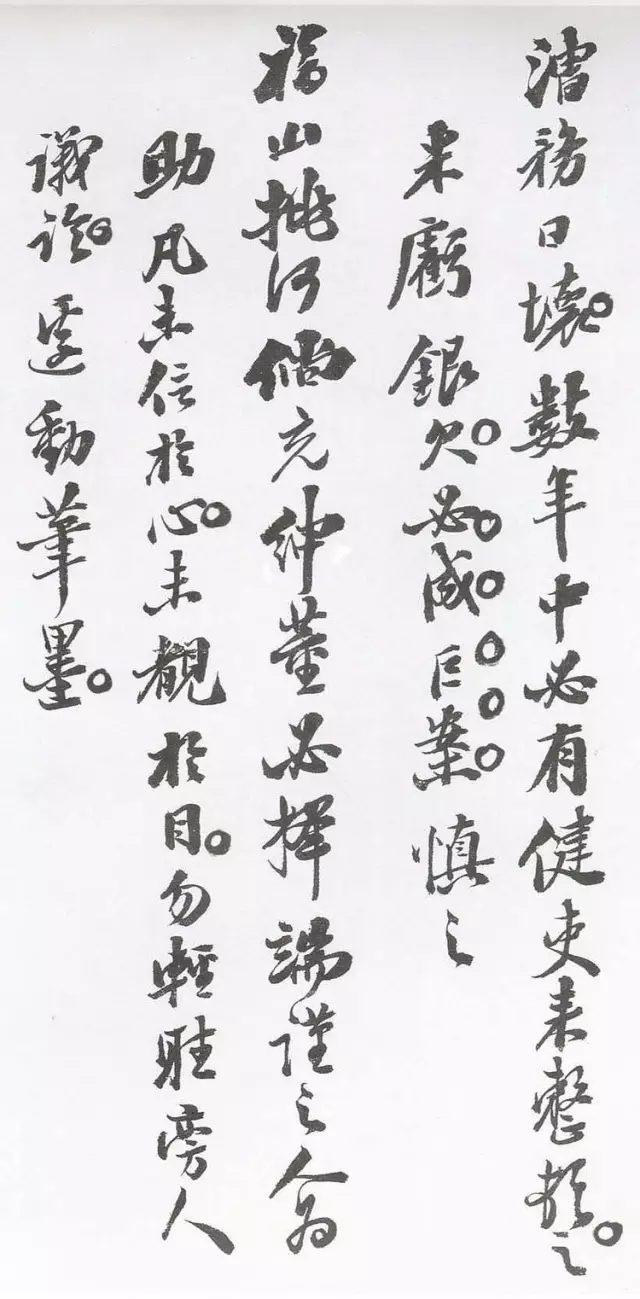 漕務日壞。數年中必有健吏来整頓。之
米虧銀欠。必。成。巨。案。慎之
福山挑河倘充紳董必擇端謹之人為
助凡未信於心。未覩於目。勿輕聽旁人
議論。遽動筆墨。